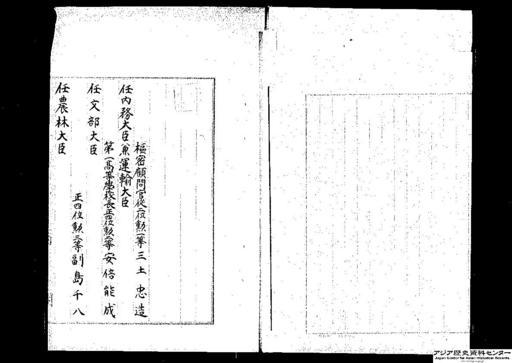 枢密顧問官従二位勲一等三土忠造
任内務大臣兼運輸大臣
第一高等学校長正三位勲一等安倍能成
任文部大臣
正四位勲三等副島千八
任農林大臣
アジア歴史資料センター
Japan Center for Asian Historical Records